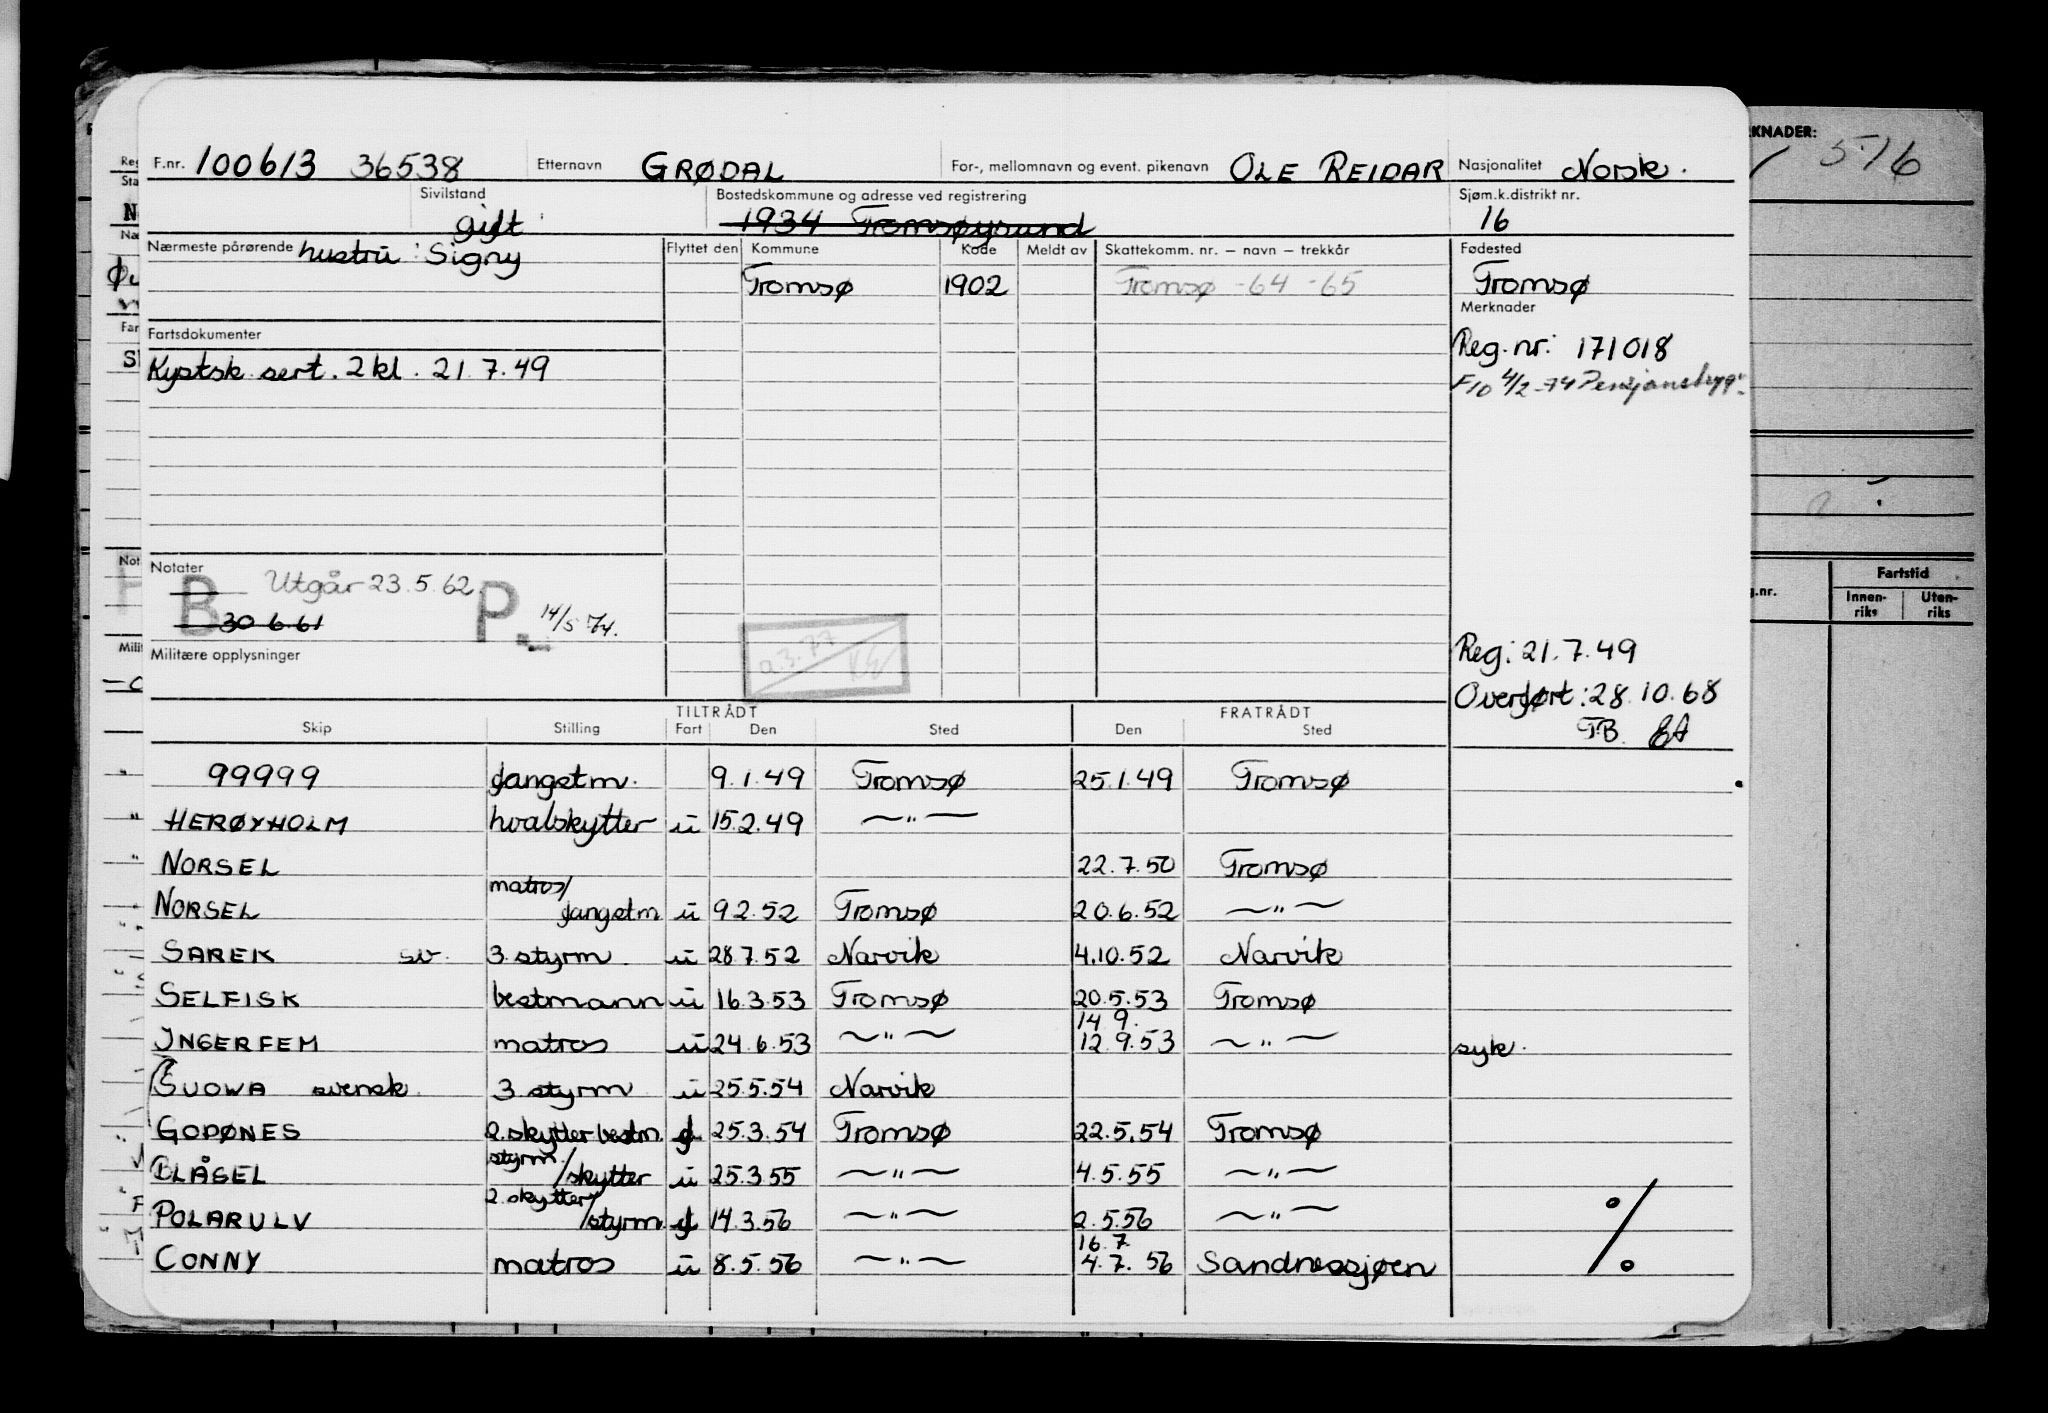 F.nr. 100613 36538 Etternavn GRØDAL For-, mellomnavn og event. pikenavn OLE REIDAR Nasjonalitet Norsk.
Sivilstand gift Bostedskommune og adresse ved registrering 1934 Tromsøysund Sjøm.k.distrikt nr. 16
Nærmeste pårørende hustru: Signy Flyttet den Kommune Kode Meldt av Skattekomm. nr. – navn – trekkår Fødested
Tromsø 1902 Tromsø -64 -65 Tromsø
Merknader
Fartsdokumenter Reg. nr: 171018
Kystsk sert. 2 kl. 21.7.49 F10 4/2-74 Pensjonstrygd.
Notater
B Utgår 23.5.62 P.
30 6 61 14/5 74.
Militære opplysninger Reg: 21.7.49
Overført: 28.10.68
TB.
TILTRÅDT FRATRÅDT
Skip Stilling Fart Den Sted Den Sted
99999 fangstm. 9.1.49 Tromsø 25.1.49 Tromsø
HERØYHOLM hvalskytter u 15.2.49 — " —
NORSEL 22.7.50 Tromsø
NORSEL matros/ fangstm u 9 2.52 Tromsø 20.6.52 — " —
SAREK sv. 3. styrm. u 28.7.52 Narvik 4.10.52 Narvik
SELFISK bestmann u 16.3.53 Tromsø 20.5.53 Tromsø
14 9.
INGERFEM matros u 24.6.53 — " — 12.9.53 — " — syk.
SUOWA svensk. 3 styrm u 25.5.54 Narvik
GODØNES 2. skytter bestm. f 25.3.54 Tromsø 22.5.54 Tromsø
BLÅSEL styrm./skytter u 25.3.55 — " — 4.5.55 — " —
POLARULV 2. skytter/styrm. f 14.3.56 — " — 2.5.56 — " —
16.7
CONNY matros u 8.5.56 — " — 4.7.56 Sandnessjøen
%
KNADER:
Fartstid
g.nr. Innen-riks Uten-riks